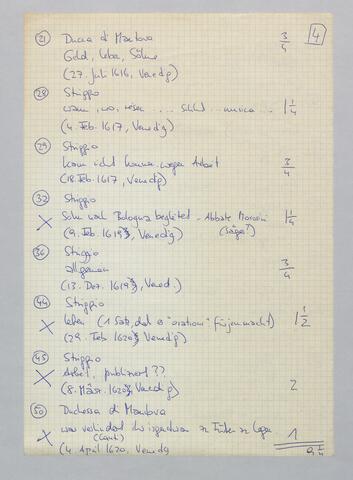 4
21 Duca di Mantova 3/4
Geld, Leben, Söhne
(27. Juli 1616, Venedig)
28 Striggio
wann, wo, ... musica ... 1 1/4
(4. Feb. 1617, Venedig)
29 Striggio
kam nicht wegen Arbeit 3/4
(18. Feb. 1617, Venedig)
32 Striggio
Sohn nach Bologna begleitet - Abbate Morosini 1 1/4
(9. Feb. 1619, Venedig) (Säge?)
36 Striggio
allgemein 3/4
(13. Dez. 1619, Vened.)
44 Striggio
(1 Satz, daß er "oration" für jemand macht) 1 1/2
(29. Feb. 1620, Venedig)
45 Striggio
Arbeit, publiziert ?? 2
(8. März 1620, Venedig)
50 Duchessa di Mantova
was verhindert ihr irgendwas zu zu 1
(4. April 1620, Venedig
9 1/4